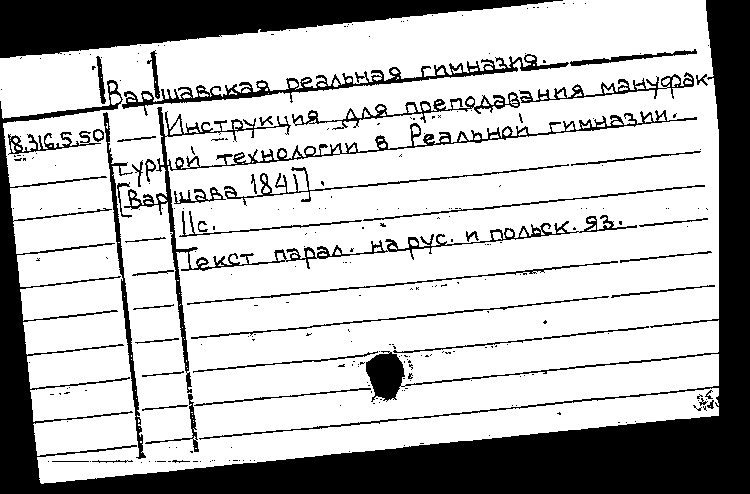 Варшавская реальная гимназия.
18.316.5.50
Инструкция для преподавания мануфак-
турной технологии в Реальной гимназии.
[Варшава, 1841].
11с.
Текст парал. на рус. и польск. яз.